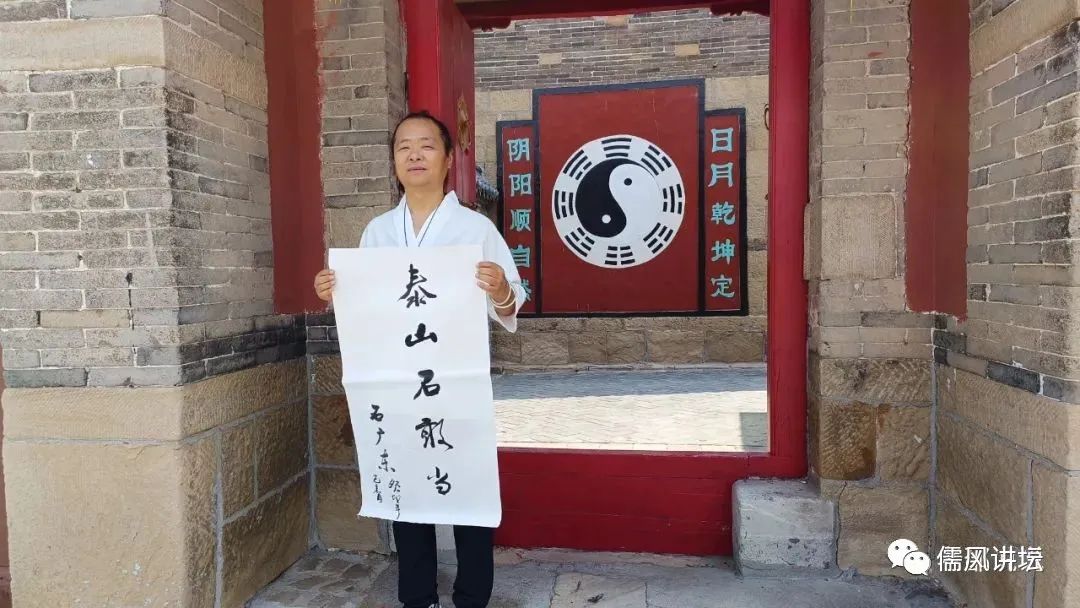 日月乾坤定
阴阳顺自然
泰山石敢当
石广东
儒风讲坛